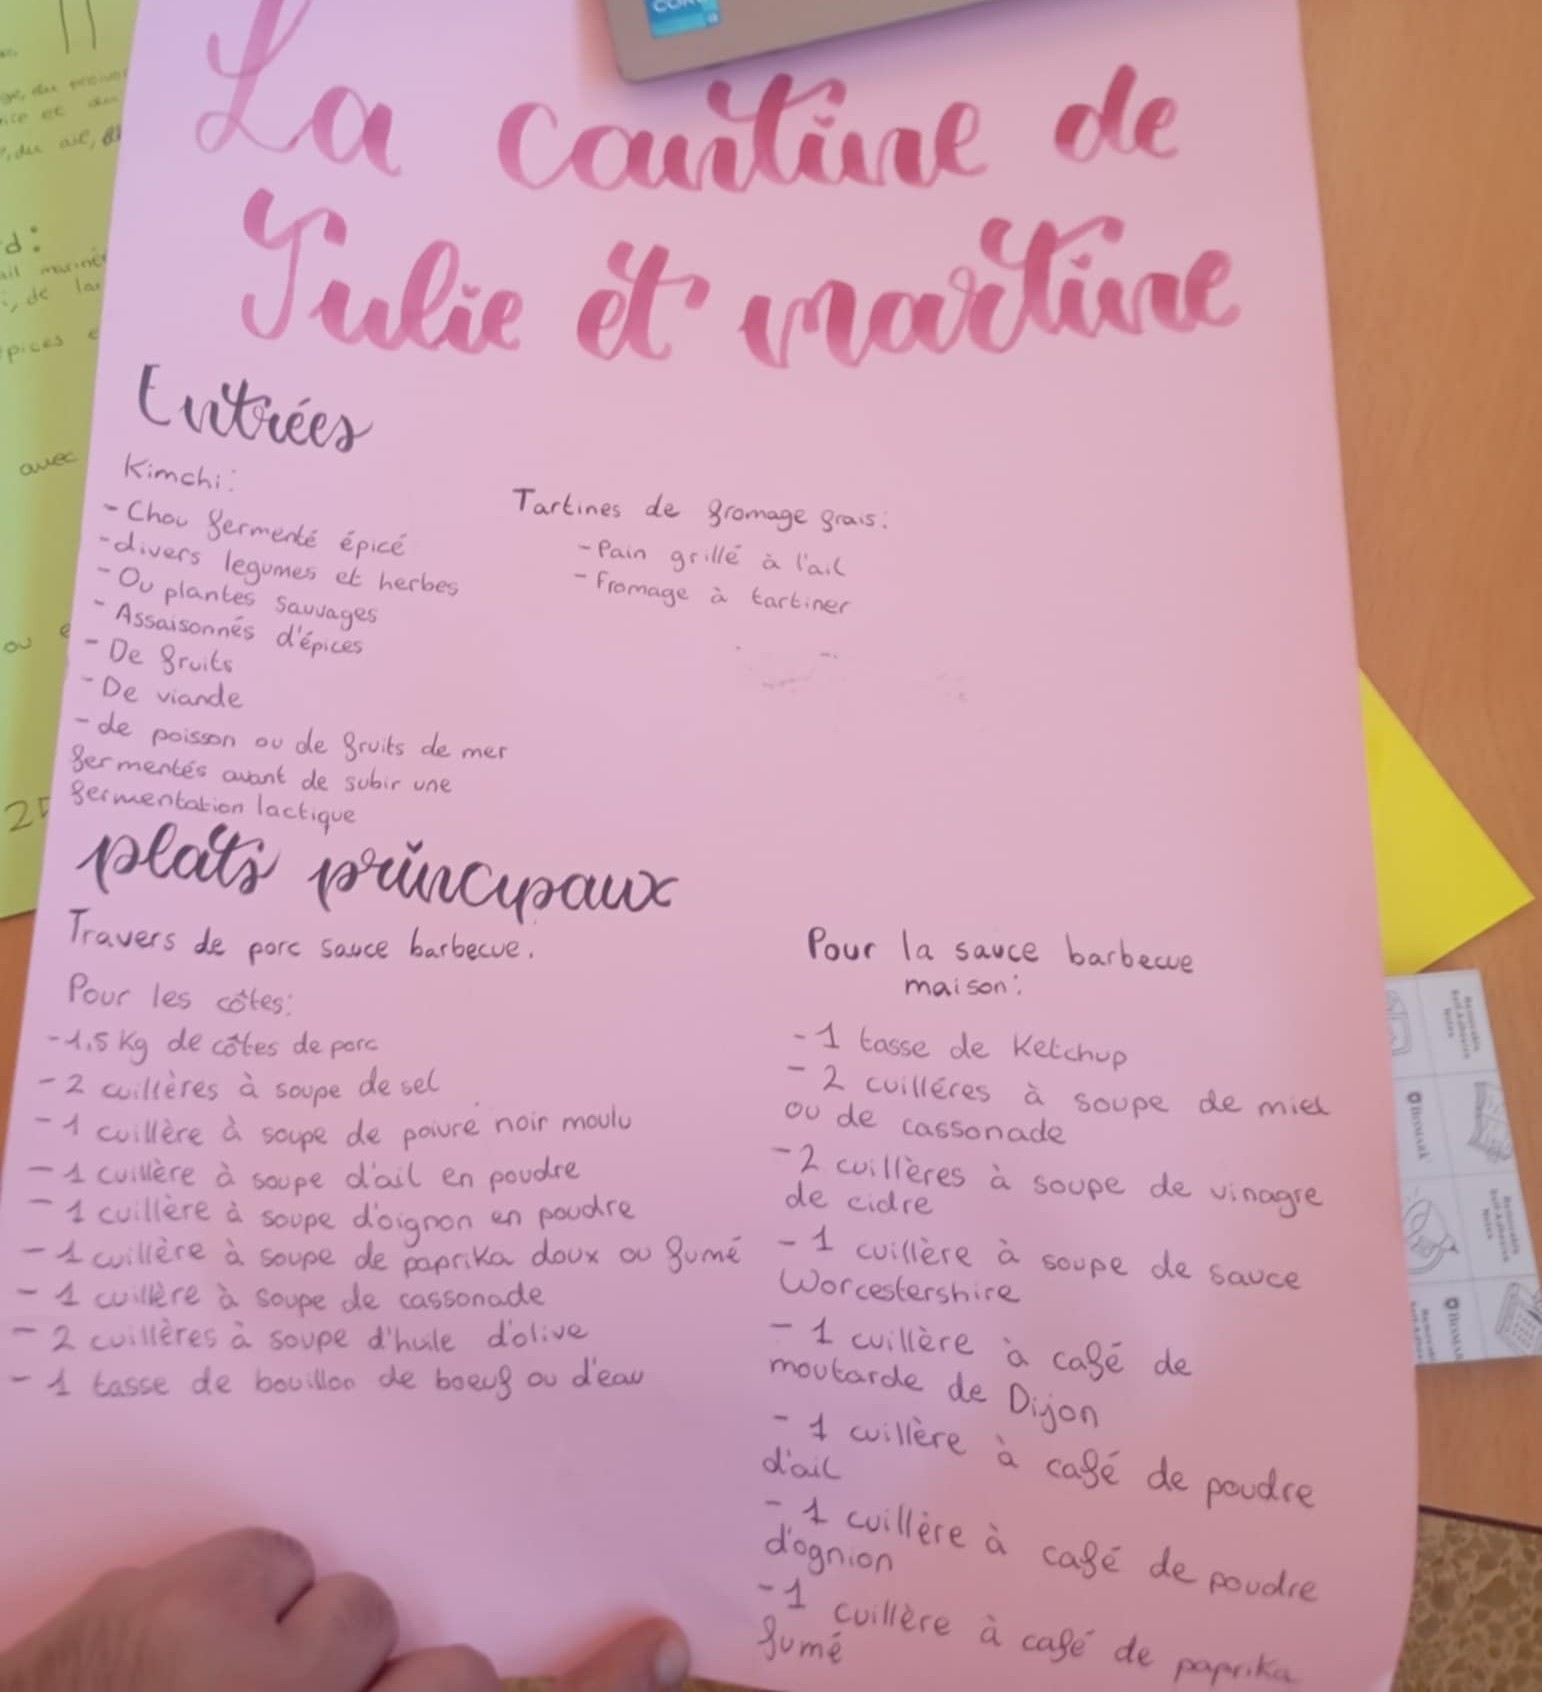 La cantine de
Julie et martine
Entrées
Kimchi:
- Chou fermenté épicé
- divers legumes et herbes
- Ou plantes sauvages
- Assaisonnés d'épices
- De fruits
- De viande
- de poisson ou de fruits de mer
fermentés avant de subir une
fermentation lactique
Tartines de fromage frais:
- Pain grillé à l'ail
- Fromage à tartiner
plats principaux
Travers de porc sauce barbecue.
Pour les côtes:
- 1.5 Kg de côtes de porc
- 2 cuillères à soupe de sel
- 1 cuillère à soupe de poivre noir moulu
- 1 cuillère à soupe d'ail en poudre
- 1 cuillère à soupe d'oignon en poudre
- 1 cuillère à soupe de paprika doux ou fumé
- 1 cuillère à soupe de cassonade
- 2 cuillères à soupe d'huile d'olive
- 1 tasse de bouillon de boeuf ou d'eau
Pour la sauce barbecue
maison:
- 1 tasse de Ketchup
- 2 cuilléres à soupe de miel
ou de cassonade
- 2 cuillères à soupe de vinagre
de cidre
- 1 cuillère à soupe de sauce
Worcestershire
- 1 cuillère à café de
moutarde de Dijon
- 1 cuillère à café de poudre
d'ail
- 1 cuillère à café de poudre
d'ognion
- 1 cuillère à café de paprika
fumé
d:
avec
ou
Removable
Self-Adhesive
Notes
BISMARK